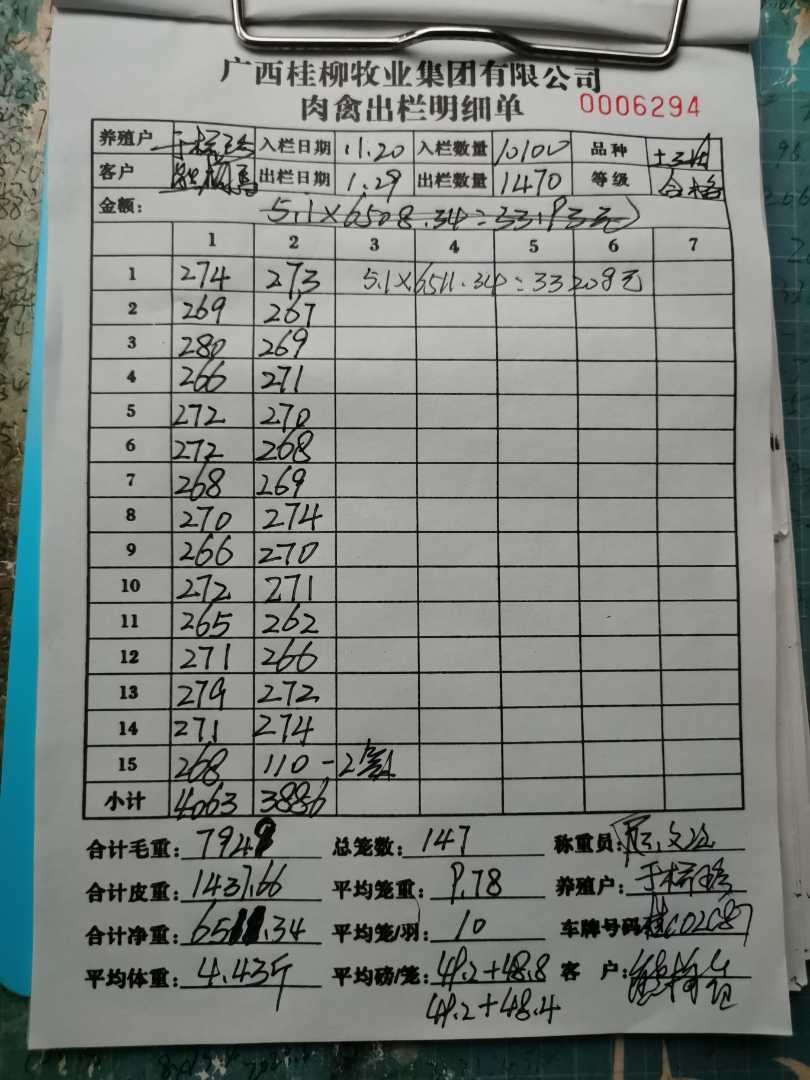 广西桂柳牧业集团有限公司
肉禽出栏明细单 0006294
养殖户 入栏日期 11.20 入栏数量 10100 品种
客户 出栏日期 1.29 出栏数量 1470 等级 合格
金额: 5.1×6508.34=33193元
1 2 3 4 5 6 7
1 274 273 5.1×6511.34=33209元
2 269 267
3 280 269
4 266 271
5 272 270
6 272 268
7 268 269
8 270 274
9 266 270
10 272 271
11 265 262
12 271 266
13 279 272
14 271 274
15 268 110 -2
小计 4063 3886
合计毛重: 7949 总笼数: 147 称重员:
合计皮重: 1437.66 平均笼重: 9.78 养殖户:
合计净重: 6511.34 平均笼/羽: 10 车牌号码 桂C02C87
平均体重: 4.43斤 平均磅/笼: 49.2+48.8 客 户:
49.2+48.4